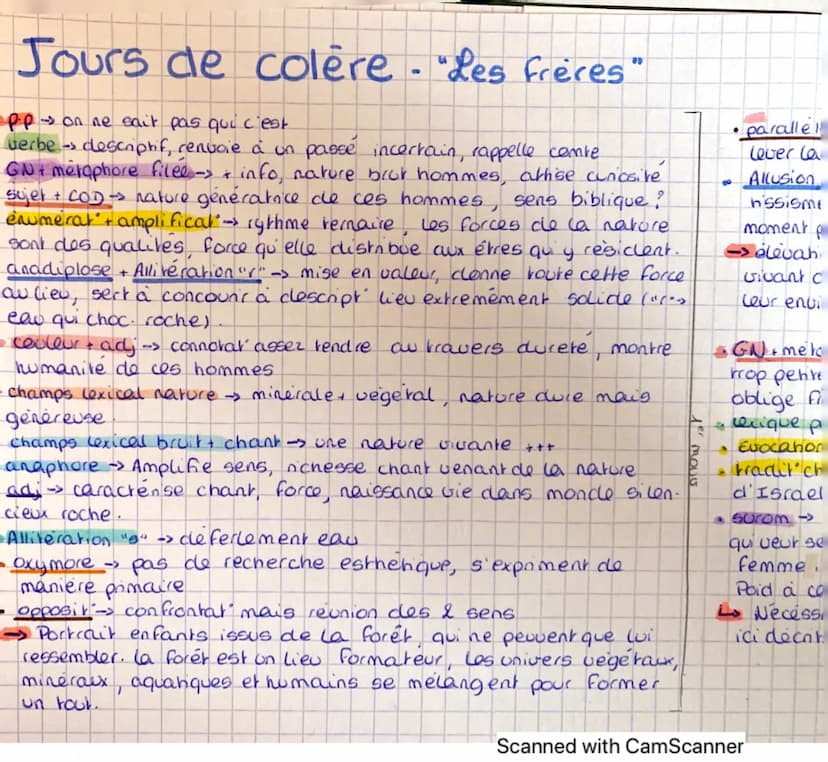 Jours de colère - "Les frères"
p.p → on ne sait pas qui c'est
verbe → descriptif, renvoie à un passé incertain, rappelle conte
GN + métaphore filée → + info, nature brut hommes, attise curiosité
sujet + COD → nature génératrice de ces hommes, sens biblique ?
énumérat° + amplificat° → rythme ternaire, les forces de la nature
sont des qualités, force qu'elle distribue aux êtres qui y résident.
anadiplose + Allitération "r" → mise en valeur, donne toute cette force
au lieu, sert à concourir à descript° lieu extrêmement solide ("r" →
eau qui choc. roche).
couleur + adj → connotat° assez tendre au travers dureté, montre
humanité de ces hommes
champs lexical nature → minérale + végétal, nature dure mais
généreuse.
champs lexical bruit + chant → une nature vivante +++
anaphore → Amplifie sens, richesse chant venant de la nature
adj → caractérise chant, force, naissance vie dans monde silen-
cieux roche.
Allitération "s" → déferlement eau
oxymore → pas de recherche esthétique, s'expriment de
manière primaire
opposit° → confrontat° mais réunion des 2 sens
→ Portrait enfants issus de la forêt, qui ne peuvent que lui
ressembler. la forêt est un lieu formateur, les univers végétaux,
minéraux, aquatiques et humains se mélangent pour former
un tout.
1er mouv
• parallél
lever la
• Allusion
rissisme
moment p
→ élévat
vivant c
leur envi
• GN + méta
trop petite
oblige fi
• lexique p
• Evocation
• tradit° ch
d'Israel
• surom →
qui veut se
femme.
Poid à ce
↳ Nécessi
ici décrit
Scanned with CamScanner